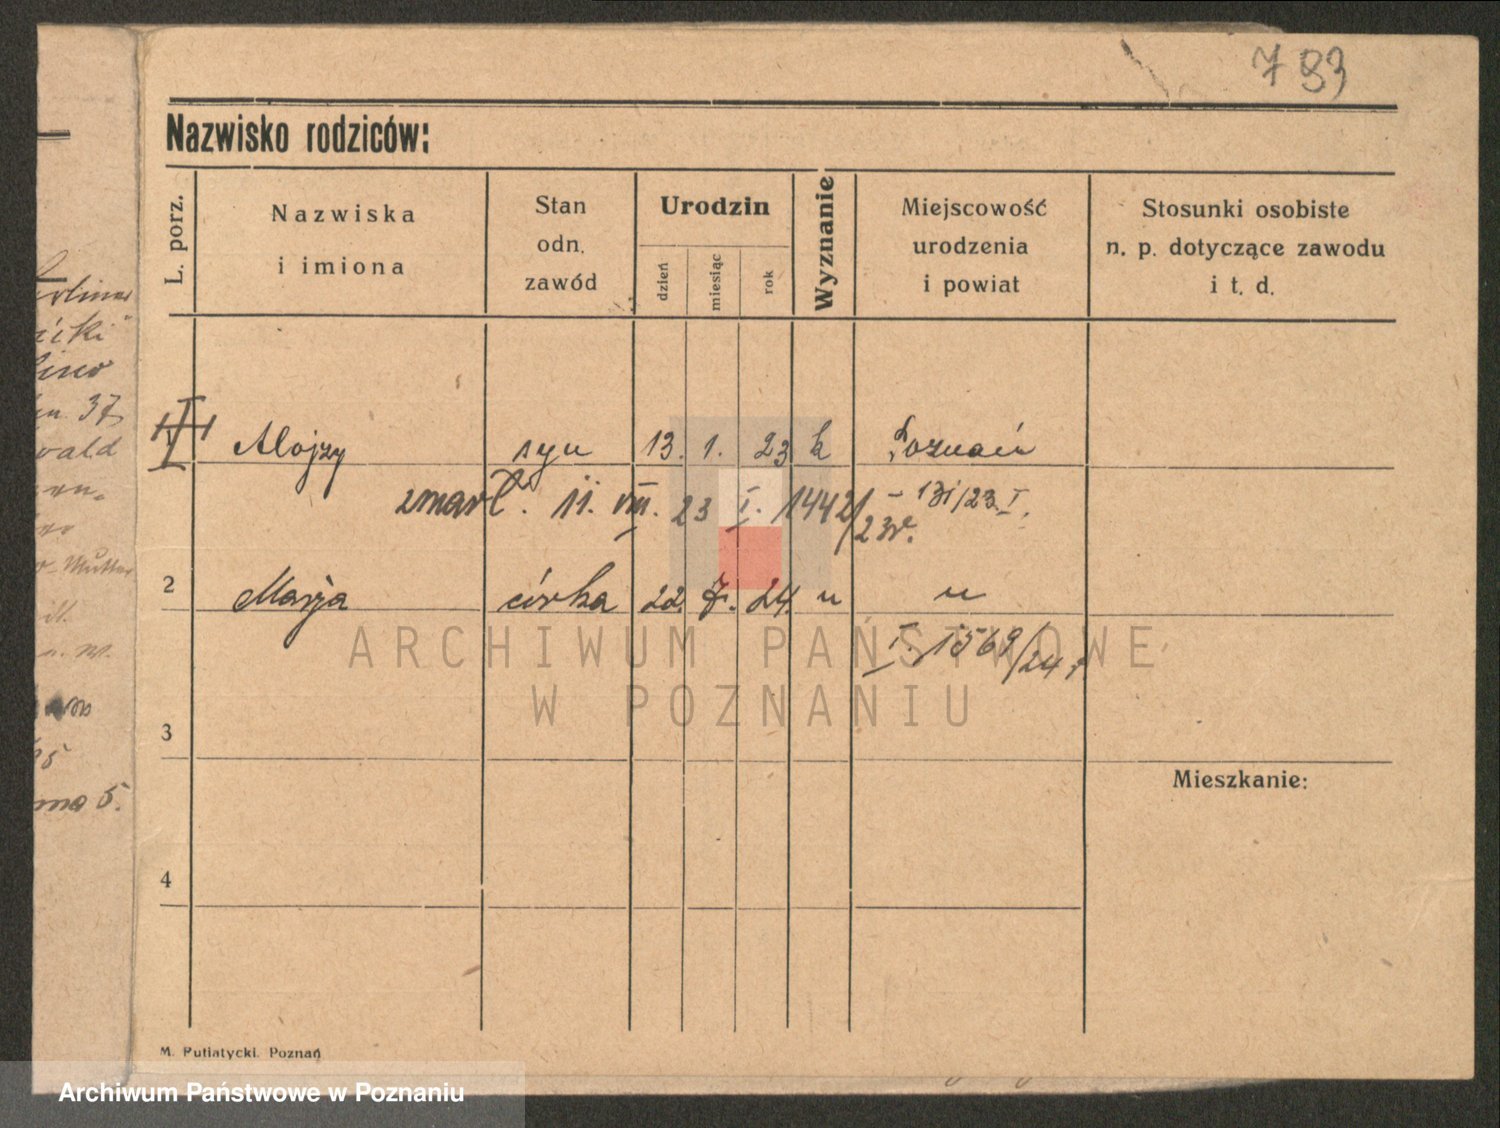 7 93
Nazwisko rodziców:
L. porz.
Nazwiska
i imiona
Stan
odn.
zawód
Urodzin
dzień
miesiąc
rok
Wyznanie
Miejscowość
urodzenia
i powiat
Stosunki osobiste
n. p. dotyczące zawodu
i t. d.
Alojzy syn 13. 1. 23 k Poznań
zmarł. 11. VIII. 23 I. 1442/23r. – 131/23. I.
2 Marja córka 22. 7. 24. " "
I. 1569/24.
3
Mieszkanie:
4
M. Putiatycki. Poznań
37
wald
Mutter
5.
ARCHIWUM PAŃSTWOWE
W POZNANIU
Archiwum Państwowe w Poznaniu